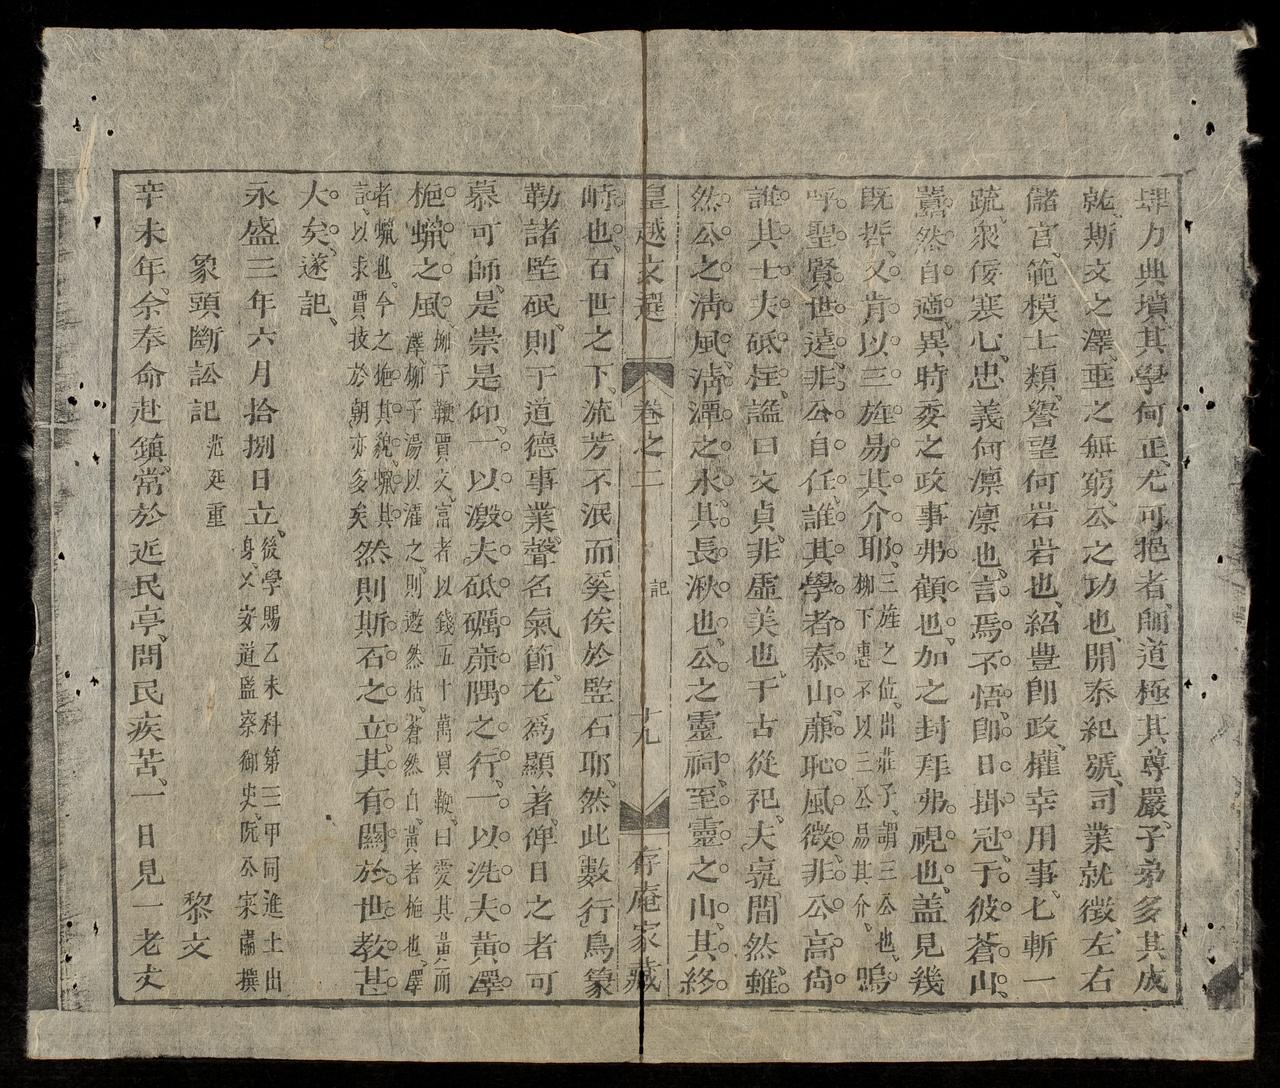 肆力典墳其學何正尤可挹者師道極其尊嚴子弟多其成
就斯文之澤垂之無窮公之功也開泰紀號司業就徵左右
儲宮範模士類譽望何岩岩也紹豊卽政權幸用事七斬一
疏衆佞寒心忠義何凛凛也言焉不悟卽日掛冠于彼蒼山
囂然自適異時委之政事弗顧也加之封拜弗視也盖見幾
旣哲又肯以三旌易其介耶三旌之位出莊子謂三公也嗚
柳下惠不以三公易其介
呼聖賢世遠非公自任誰其學者泰山廉恥風微非公高尙
誰其士夫砥柱謚曰文貞非虛美也于古從祀夫豈間然雖
然公之淸風淸潭之水其長湫也公之靈祠至靈之山其終
皇越文選 卷之二 記 十九 存庵家藏
峙也百世之下流芳不泯而奚俟於竪石耶然此數行鳥篆
勒諸堅珉則于道德事業聲名氣節尤爲顯著俾目之者可
慕可師是崇是仰一以激夫砥礪廉隅之行一以洗夫黃澤
梔蠟之風柳子鞭賈文言者以錢五十萬買鞭曰愛其黃而
澤柳子湯以濯之則遬然枯蒼然白黃者梔也澤
者蠟也今之梔其貌蠟其
言以求賈技於朝亦多矣然則斯石之立其有關於世教甚
大矣遂記
永盛三年六月拾捌日立後學賜乙未科第三甲同進士出
身乂安道監察御史阮公宷肅撰
象頭斷訟記范廷重 黎文
辛未年余奉命赴鎭常於近民亭問民疾苦一日見一老丈